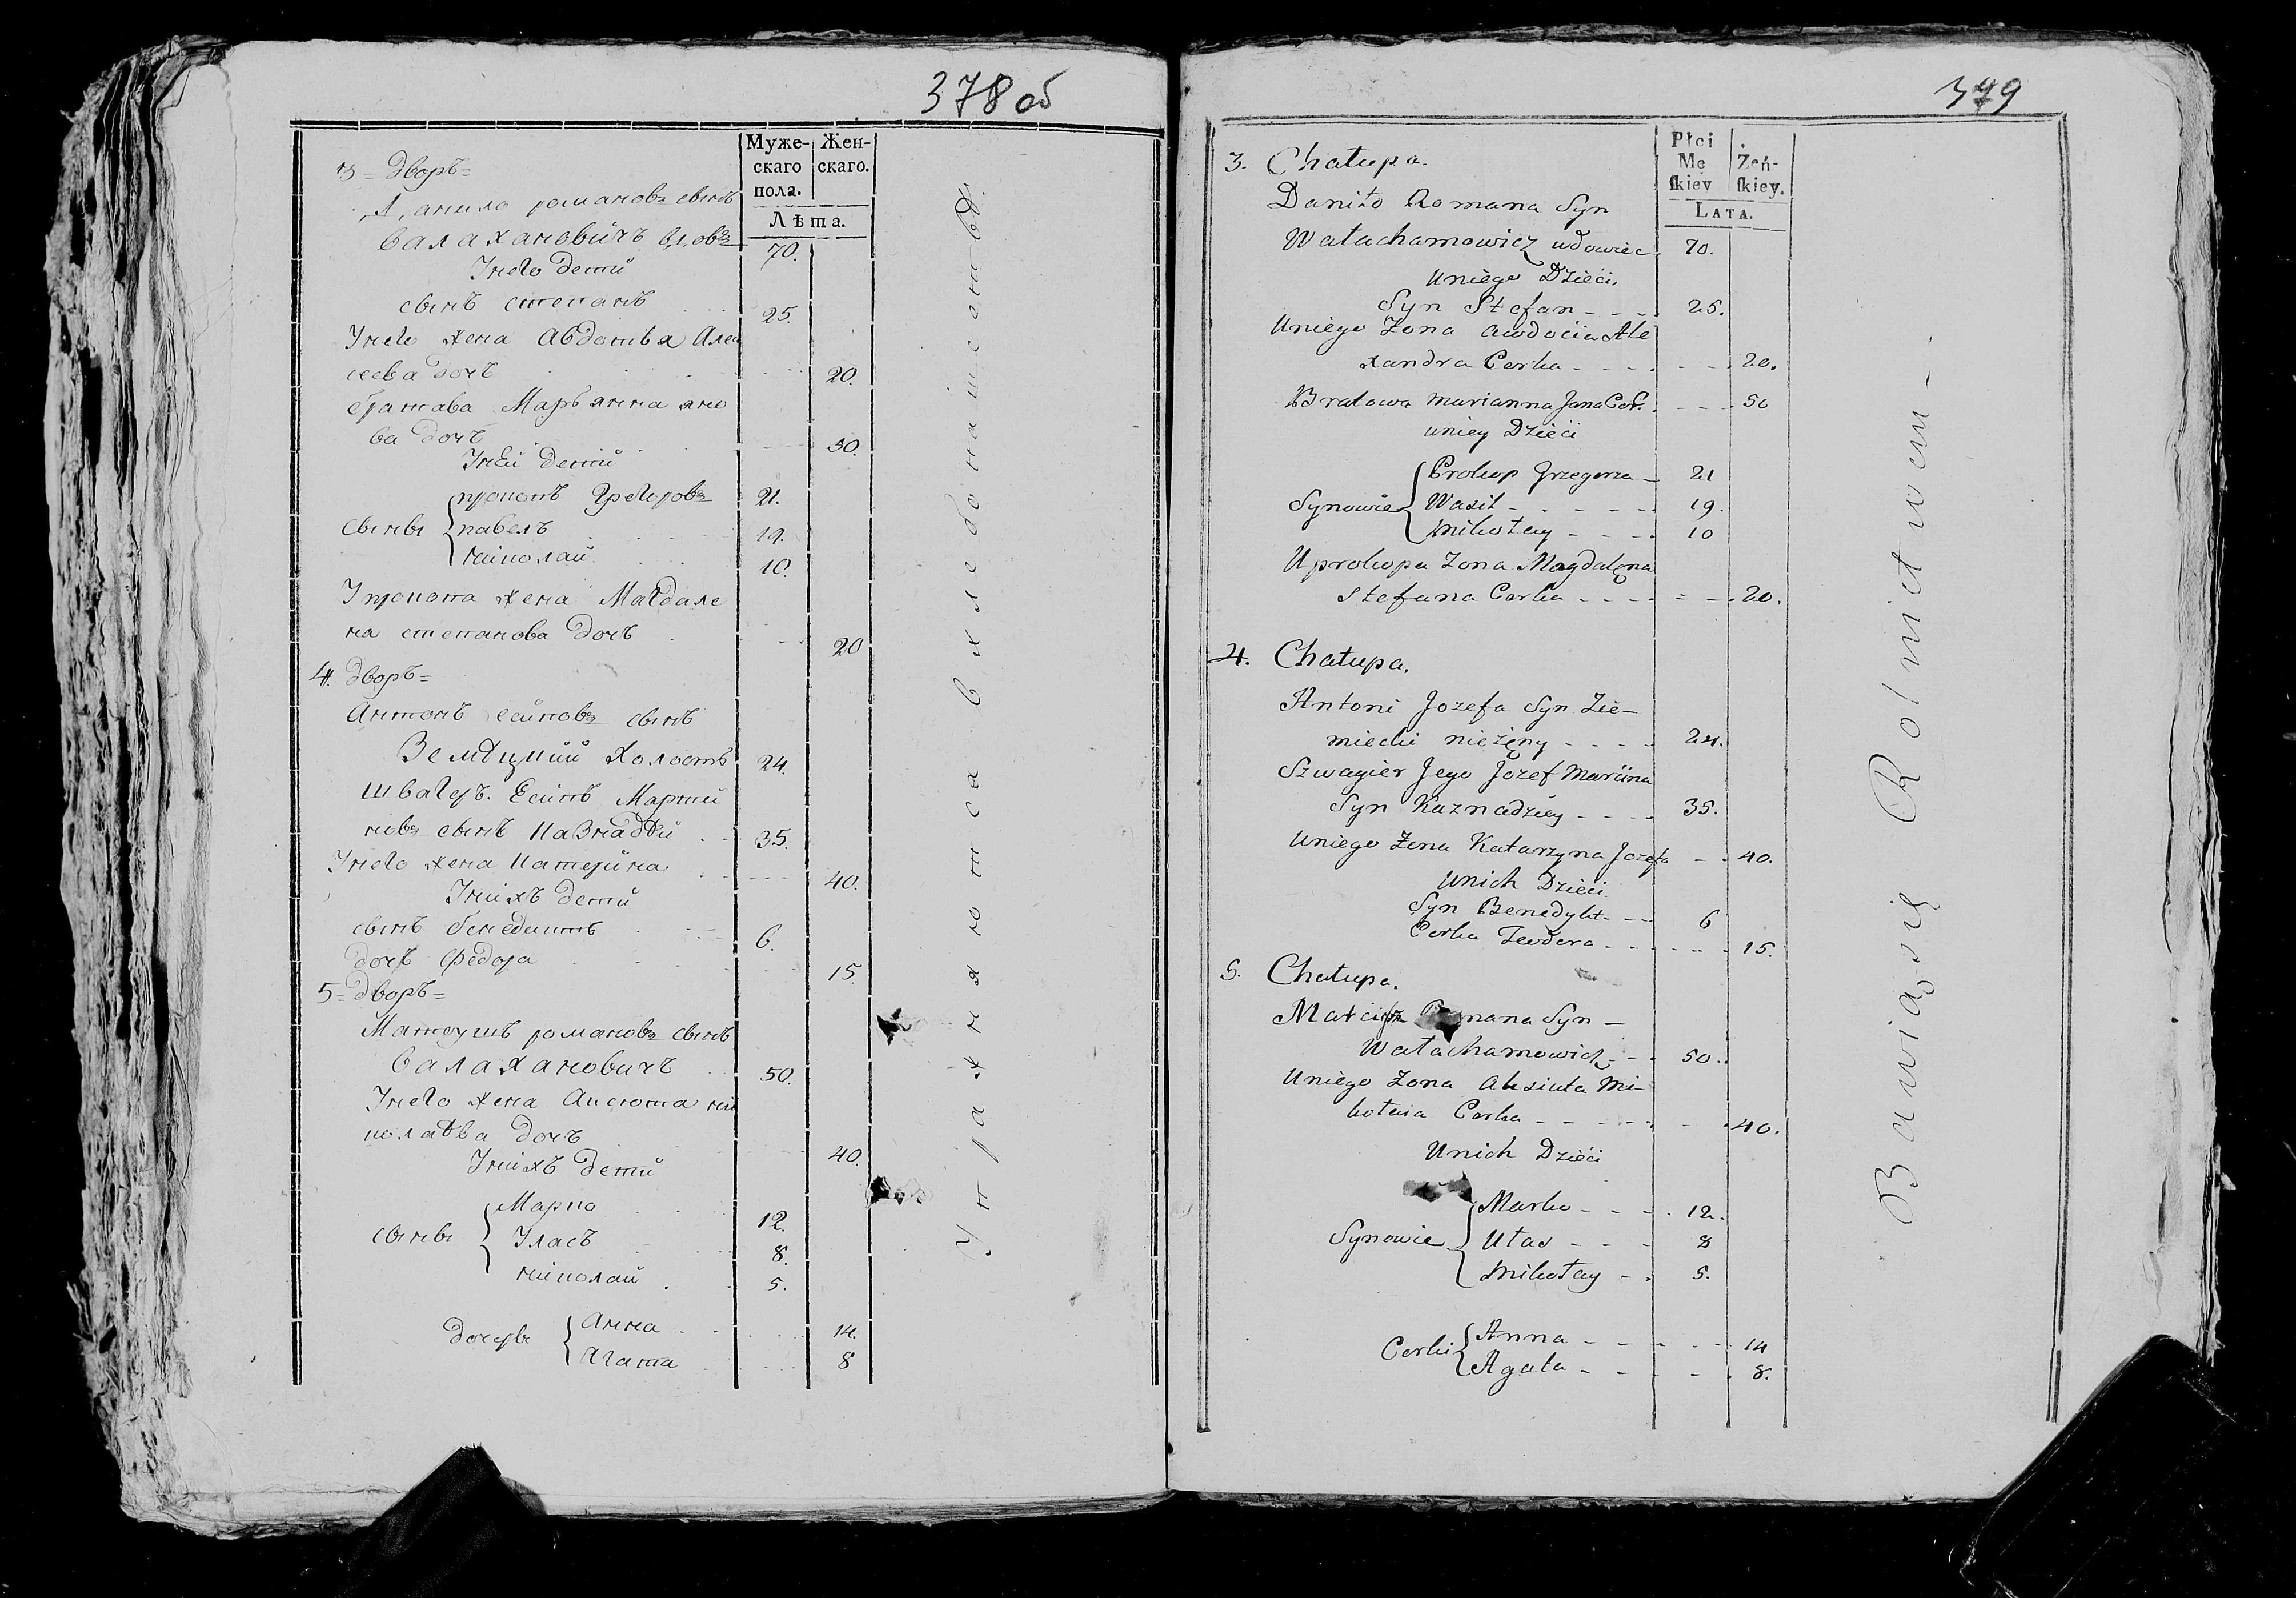 378 об
Муже-
скаго
пола.
Жен-
скаго.
Лѣта.
3 = дворъ =
Данило романовъ сынъ
валахановичъ вдовъ 70.
Унего дети
сынъ степанъ 25.
Унего жена Авдотья Алек
сева дочъ 20.
братава Марьянна яно
ва дочъ 50.
Уней дети
сыны
прокопъ Грегоровъ 21.
павелъ 19.
николай 10.
Упрокопа жена Магдале
на степанова дочъ 20
4. дворъ =
Антонъ есиповъ сынъ
Земѣцкий холостъ 24.
швагеръ Есипъ Марти
новъ сынъ казнадѣй 35.
Унего жена катерина 40.
Унихъ дети
сынъ бенедиктъ 6.
дочъ федора 15.
5 = дворъ =
Матеушъ романовъ сынъ
валахановичъ 50.
Унего жена Аксюта ни
колаева дочъ 40.
Унихъ дети
сыны
Марко 12.
Уласъ 8.
николай 5.
дочеры
Анна 14.
Агата 8
Упражняются в хлебопашестве.
379
Płci
Mę
skiey
Żeń-
skiey.
LATA.
3. Chałupa.
Daniło Romana Syn
Wałachamowicz wdowiec 70.
Uniego Dzieci.
Syn Stefan - - - 25.
Uniego Zona Awdocia Ale
xandra Corka - - - - - 20.
Bratowa Marianna Jana Cor. - - - 50
uniey Dzieci
Synowie
Prokop Grzegorza - 21
Wasil - - - - - 19.
Mikołay - - - - 10
U prokopa Zona Magdalęna
Stefana Corka - - - - - - 20.
4. Chałupa.
Antoni Jozefa Syn Zie-
miecki nieżęny - - - - 24.
Szwagier Jego Jozef Marcina
Syn Kaznadziey - - - - 35.
Uniego Zona Katarzyna Jozefa - - 40.
Unich Dzieci.
Syn Benedykt - - - 6
Corka Teodora - - - - - - 15.
5. Chałupa.
Maciey Romana Syn -
Wałachamowicz - - 50.
Uniego Zona Aksiuta Mi-
kołaia Corka - - - - - - 40.
Unich Dzieci
Synowie
Marko - - - - 12.
Ułas - - - 8
Mikołay - - 5.
Corki
Anna - - - - - 14
Agata - - - - 8.
Bawią się Rolnictwem -